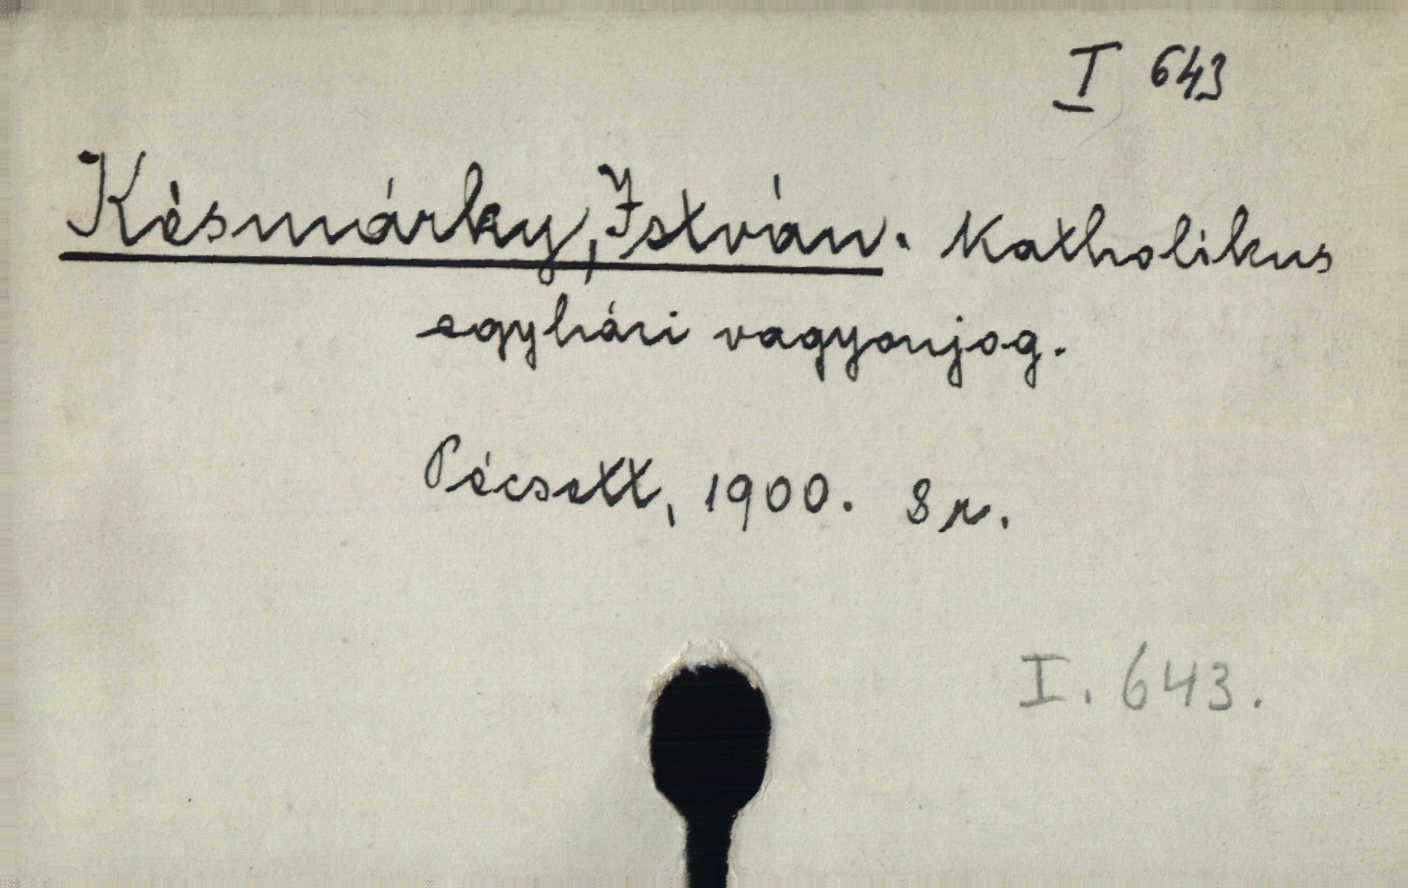 I 643
Késmárky, István. Katholikus
egyházi vagyonjog.
Pécsett, 1900. 8 r.
I. 643.